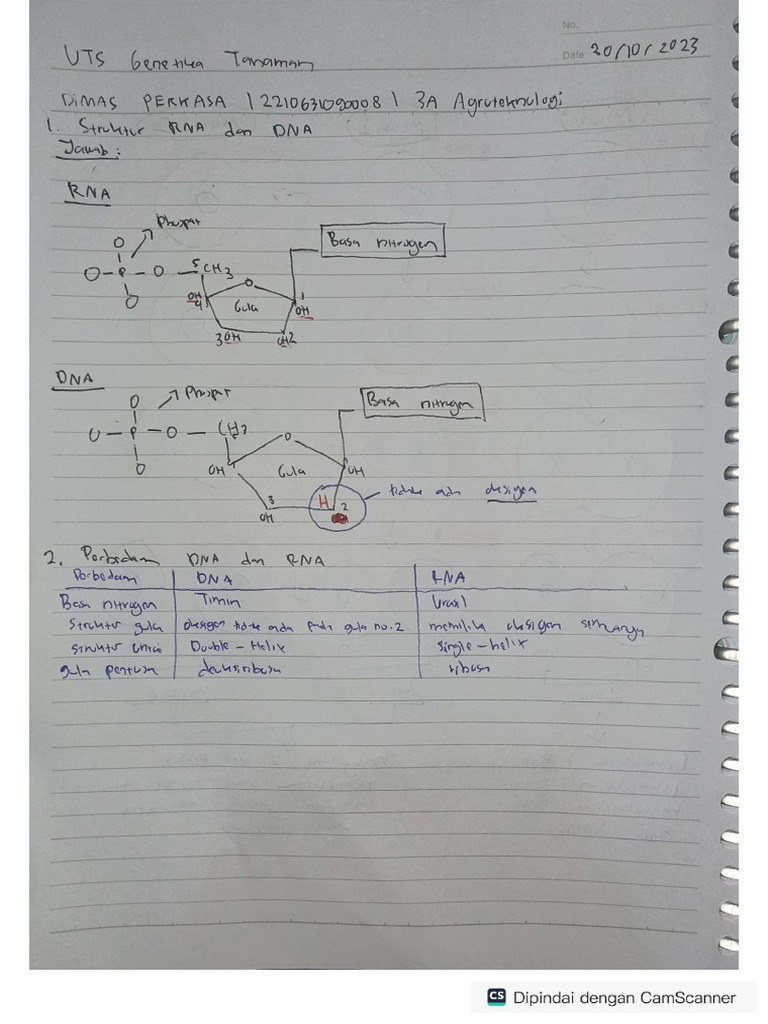 No.
Date 30/10/2023
UTS Genetika Tanaman
DIMAS PERKASA | 2210631090008 | 3A Agroteknologi
1. Struktur RNA dan DNA
Jawab :
RNA
Phospat
Basa nitrogen
O
O - P - O - 5 CH3
O
O
OH 4
Gula
1 OH
3 OH
OH 2
DNA
Phospat
Basa nitrogen
O
O - P - O -
O
O
OH
Gula
OH
3
OH
H
2
tidak ada oksigen
2. Perbedaan DNA dan RNA
Perbedaan DNA RNA
Basa nitrogen Timin Urasil
Struktur gula oksigen tidak ada pada gula no.2 memiliki oksigen semuanya
struktur Double - Helix single - helix
gula pentosa deoksiribosa ribosa
CS Dipindai dengan CamScanner